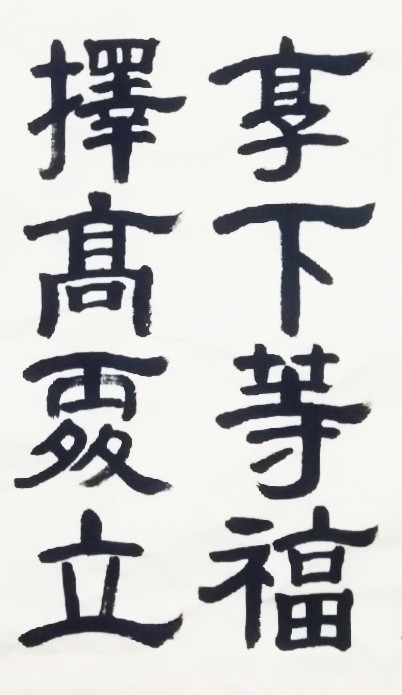 享下等福
擇高處立